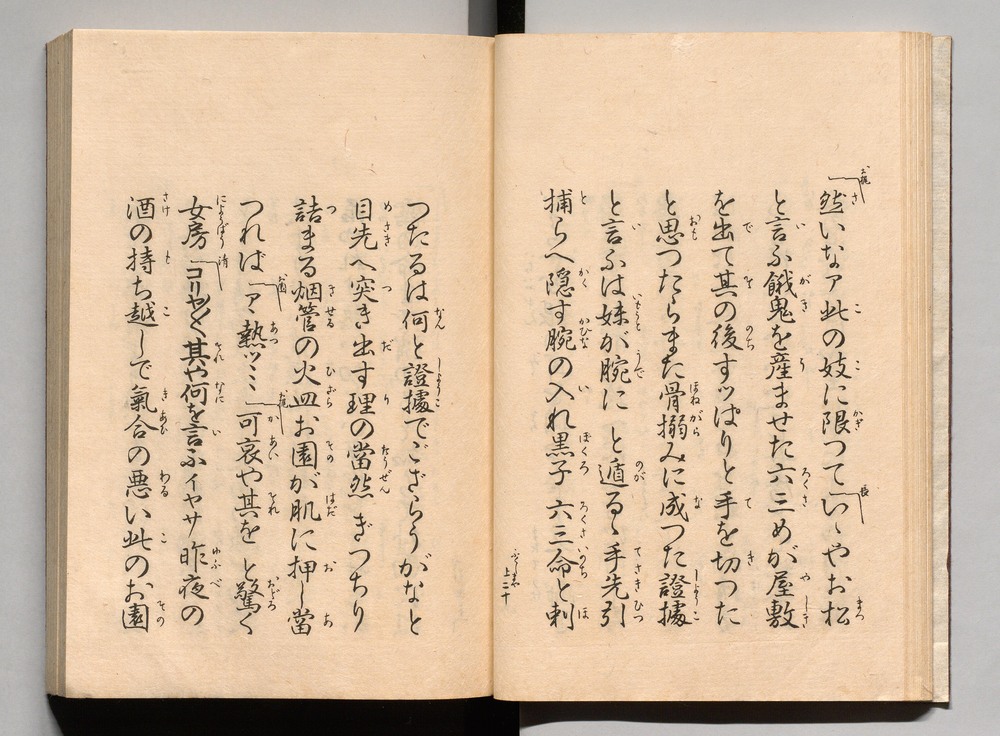 然いなア此の妓に限つていゝやお松
と言ふ餓鬼を産ませた六三めが屋敷
を出て其の後すツぱりと手を切つた
と思つたらまた骨搦みに成つた證據
と言ふは妹が腕に と遁るゝ手先引
捕らへ隠す腕の入れ黒子 六三命と刺
上二十
つたるは何と證據でござらうがなと
目先へ突き出す理の當然 ぎつちり
詰まる烟管の火皿お園が肌に押し當
つれば「ア熱ツミミ「可哀や其をと驚く
女房「コリヤ〳〵其や何を言ふイヤサ昨夜の
酒の持ち越しで氣合の悪い此のお園